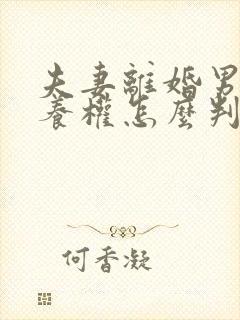 夫妻離婚男
養權怎麼判
何香凝